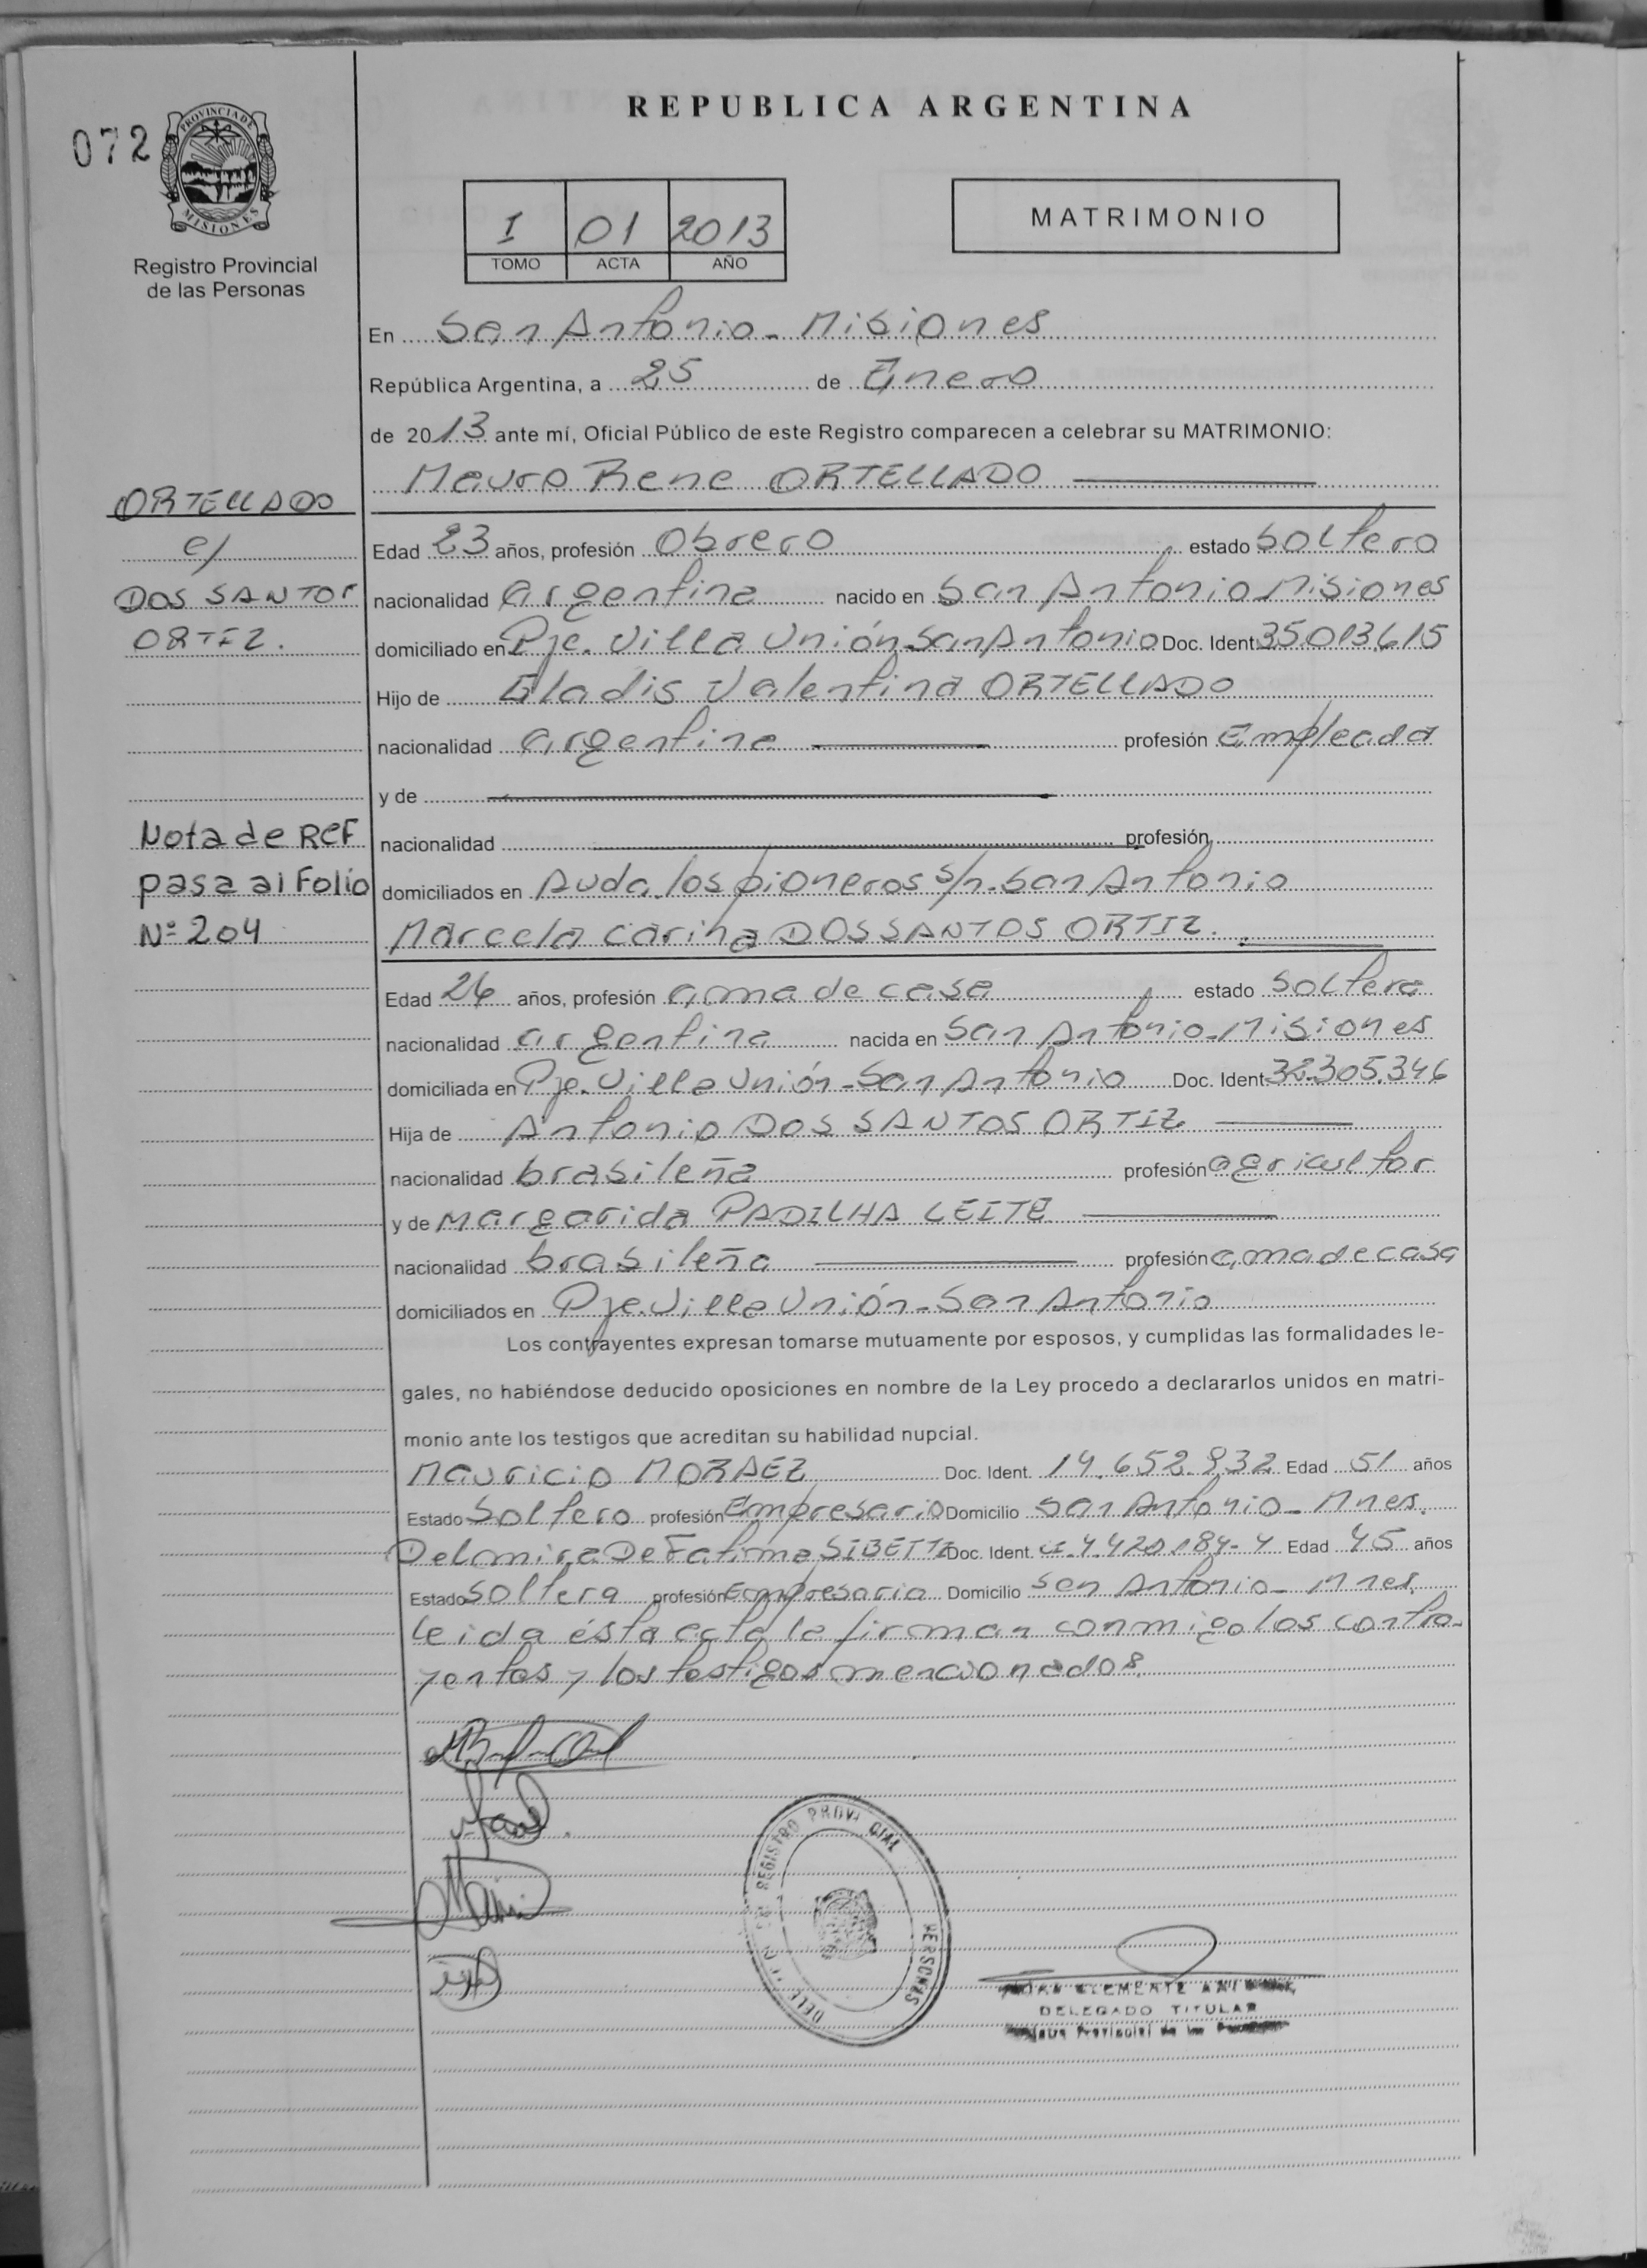 REPUBLICA ARGENTINA
072
PROVINCIA DE
MISIONES
Registro Provincial
de las Personas
I 01 2013
TOMO ACTA AÑO
MATRIMONIO
En San Antonio - Misiones
República Argentina, a 25 de Enero
de 2013 ante mí, Oficial Público de este Registro comparecen a celebrar su MATRIMONIO:
Mauro Rene ORTELLADO
ORTELLADO
c/
DOS SANTOS
ORTIZ.
Edad 23 años, profesión Obrero estado Soltero
nacionalidad argentina nacido en San Antonio Misiones
domiciliado en Pje. Villa Unión-San Antonio Doc. Ident. 35.013.615
Hijo de Gladis Valentina ORTELLADO
nacionalidad argentina profesión Empleada
y de
nacionalidad profesión
Nota de REF
pasa al Folio
Nº 204
domiciliados en Avda. los pioneros s/n. San Antonio
Marcela Carina DOS SANTOS ORTIZ.
Edad 26 años, profesión ama de casa estado Soltera
nacionalidad argentina nacida en San Antonio-Misiones
domiciliada en Pje. Villa Unión-San Antonio Doc. Ident. 32.305.346
Hija de Antonio DOS SANTOS ORTIZ
nacionalidad brasileña profesión agricultor
y de Margarida PADILHA LEITE
nacionalidad brasileña profesión ama de casa
domiciliados en Pje. Villa Unión-San Antonio
Los contrayentes expresan tomarse mutuamente por esposos, y cumplidas las formalidades le-
gales, no habiéndose deducido oposiciones en nombre de la Ley procedo a declararlos unidos en matri-
monio ante los testigos que acreditan su habilidad nupcial.
Mauricio MORAEZ Doc. Ident. 14.652.832 Edad 51 años
Estado Soltero profesión Empresario Domicilio San Antonio-Mnes.
Delomira De Fatima SIBETTI Doc. Ident. CI.4.420.184-4 Edad 45 años
Estado Soltera profesión Empresaria Domicilio San Antonio-Mnes.
Leida ésta acta la firman conmigo los contra-
yentes y los testigos mencionados.
REGISTRO PROVINCIAL
PERSONAS
CLEMENTE
DELEGADO TITULAR
Provincial de las